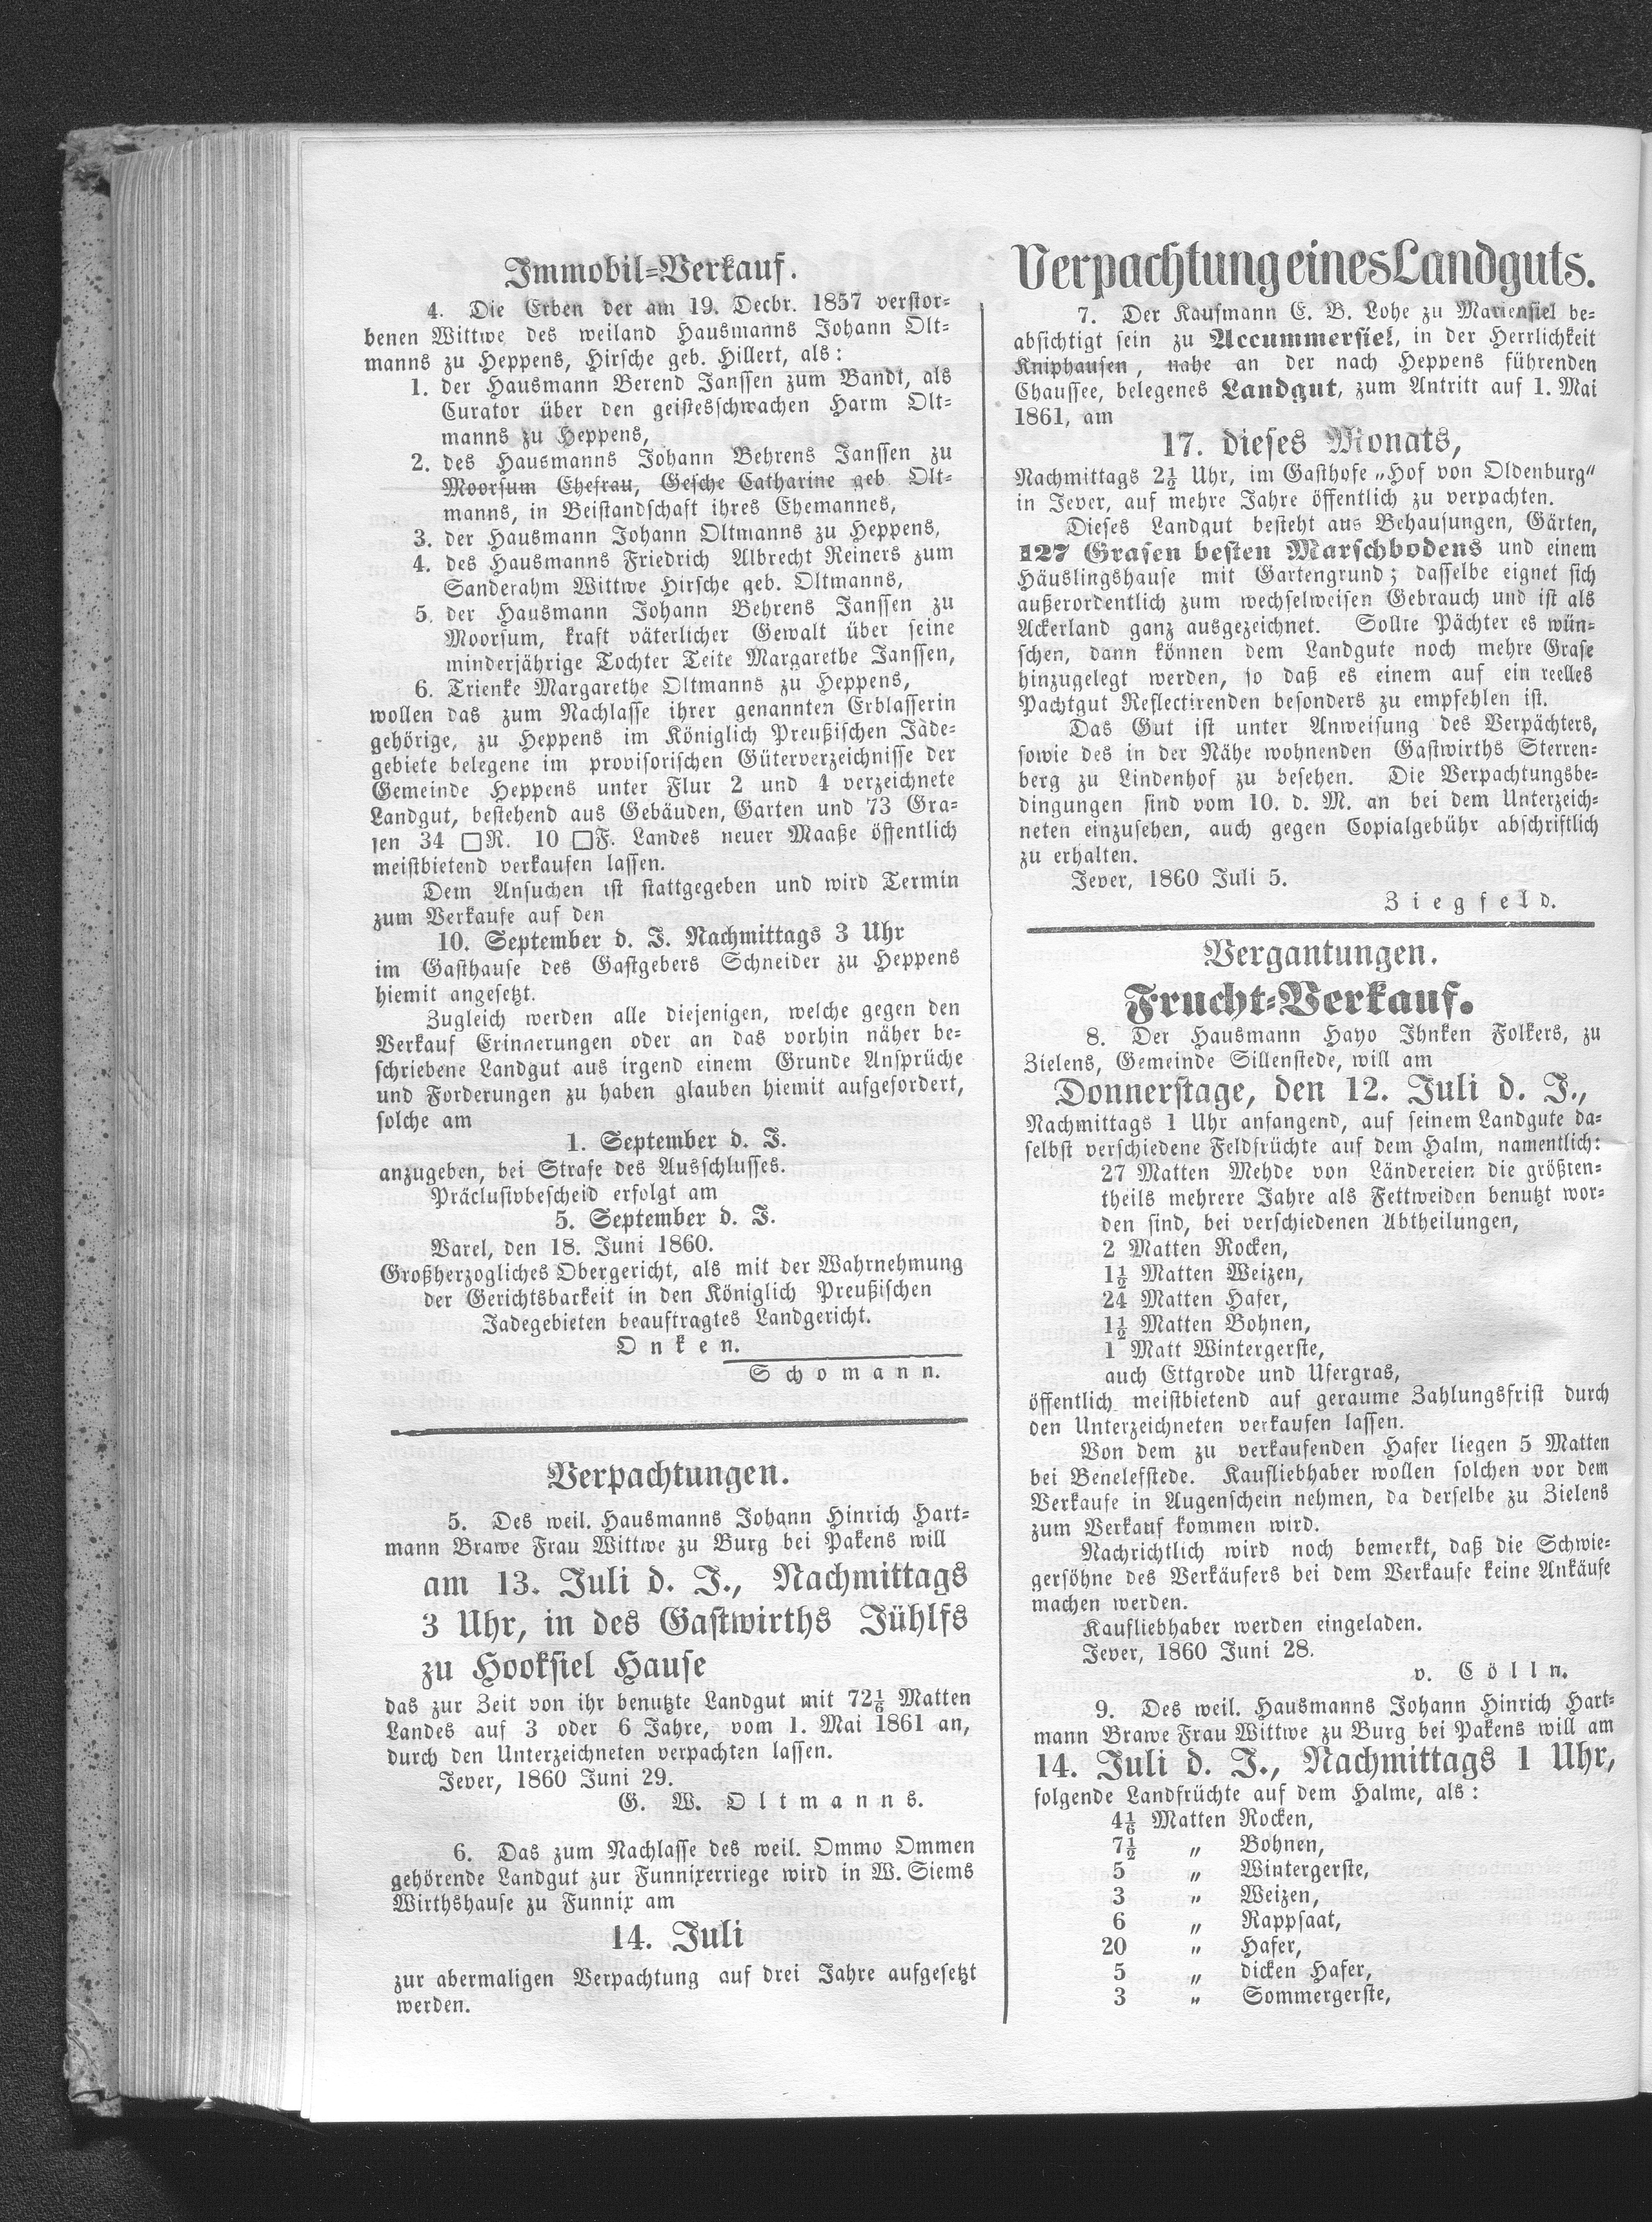 Immobil-Verkauf.
4. Die Erben der am 19. Decbr. 1857 verstor-
benen Wittwe des weiland Hausmanns Johann Olt-
manns zu Heppens, Hirsche geb. Hillert, als:
1. der Hausmann Berend Janssen zum Bandt, als
Curator über den geistesschwachen Harm Olt-
manns zu Heppens,
2. des Hausmanns Johann Behrens Janssen zu
Moorsum Ehefrau, Gesche Catharine geb. Olt-
manns, in Beistandschaft ihres Ehemannes,
3. der Hausmann Johann Oltmanns zu Heppens,
4. des Hausmanns Friedrich Albrecht Reiners zum
Sanderahm Wittwe Hirsche geb. Oltmanns,
5. der Hausmann Johann Behrens Janssen zu
Moorsum, kraft väterlicher Gewalt über seine
minderjährige Tochter Teite Margarethe Janssen,
6. Trienke Margarethe Oltmanns zu Heppens,
wollen das zum Nachlasse ihrer genannten Erblasserin
gehörige, zu Heppens im Königlich Preußischen Jade-
gebiete belegene im provisorischen Güterverzeichnisse der
Gemeinde Heppens unter Flur 2 und 4 verzeichnete
Landgut, bestehend aus Gebäuden, Garten und 73 Gra-
sen 34 □R. 10 □F. Landes neuer Maaße öffentlich
meistbietend verkaufen lassen.
Dem Ansuchen ist stattgegeben und wird Termin
zum Verkaufe auf den
10. September d. J. Nachmittags 3 Uhr
im Gasthause des Gastgebers Schneider zu Heppens
hiemit angesetzt.
Zugleich werden alle diejenigen, welche gegen den
Verkauf Erinnerungen oder an das vorhin näher be-
schriebene Landgut aus irgend einem Grunde Ansprüche
und Forderungen zu haben glauben hiemit aufgefordert,
solche am
1. September d. J.
anzugeben, bei Strafe des Ausschlusses.
Präclusivbescheid erfolgt am
5. September d. J.
Varel, den 18. Juni 1860.
Großherzogliches Obergericht, als mit der Wahrnehmung
der Gerichtsbarkeit in den Königlich Preußischen
Jadegebieten beauftragtes Landgericht.
Onken.
Schomann.
Verpachtungen.
5. Des weil. Hausmanns Johann Hinrich Hart-
mann Brawe Frau Wittwe zu Burg bei Pakens will
am 13. Juli d. J., Nachmittags
3 Uhr, in des Gastwirths Jühlfs
zu Hooksiel Hause
das zur Zeit von ihr benutzte Landgut mit 72⅙ Matten
Landes auf 3 oder 6 Jahre, vom 1. Mai 1861 an,
durch den Unterzeichneten verpachten lassen.
Jever, 1860 Juni 29.
G. W. Oltmanns.
6. Das zum Nachlasse des weil. Ommo Ommen
gehörende Landgut zur Funnixerriege wird in W. Siems
Wirthshause zu Funnix am
14. Juli
zur abermaligen Verpachtung auf drei Jahre aufgesetzt
werden.
Verpachtung eines Landguts.
7. Der Kaufmann E. B. Lohe zu Mariensiel be-
absichtigt sein zu Accummersiel, in der Herrlichkeit
Kniphausen, nahe an der nach Heppens führenden
Chaussee, belegenes Landgut, zum Antritt auf 1. Mai
1861, am
17. dieses Monats,
Nachmittags 2½ Uhr, im Gasthofe „Hof von Oldenburg“
in Jever, auf mehre Jahre öffentlich zu verpachten.
Dieses Landgut besteht aus Behausungen, Gärten,
127 Grasen besten Marschbodens und einem
Häuslingshause mit Gartengrund; dasselbe eignet sich
außerordentlich zum wechselweisen Gebrauch und ist als
Ackerland ganz ausgezeichnet. Sollte Pächter es wün-
schen, dann können dem Landgute noch mehre Grase
hinzugelegt werden, so daß es einem auf ein reelles
Pachtgut Reflectirenden besonders zu empfehlen ist.
Das Gut ist unter Anweisung des Verpächters,
sowie des in der Nähe wohnenden Gastwirths Sterren-
berg zu Lindenhof zu besehen. Die Verpachtungsbe-
dingungen sind vom 10. d. M. an bei dem Unterzeich-
neten einzusehen, auch gegen Copialgebühr abschriftlich
zu erhalten.
Jever, 1860 Juli 5.
Ziegfeld.
Vergantungen.
Frucht-Verkauf.
8. Der Hausmann Hayo Ihnken Folkers, zu
Zielens, Gemeinde Sillenstede, will am
Donnerstage, den 12. Juli d. J.,
Nachmittags 1 Uhr anfangend, auf seinem Landgute da-
selbst verschiedene Feldfrüchte auf dem Halm, namentlich:
27 Matten Mehde von Ländereien die größten-
theils mehrere Jahre als Fettweiden benutzt wor-
den sind, bei verschiedenen Abtheilungen,
2 Matten Rocken,
1½ Matten Weizen,
24 Matten Hafer,
1½ Matten Bohnen,
1 Matt Wintergerste,
auch Ettgrode und Ufergras,
öffentlich meistbietend auf geraume Zahlungsfrist durch
den Unterzeichneten verkaufen lassen.
Von dem zu verkaufenden Hafer liegen 5 Matten
bei Benelefstede. Kaufliebhaber wollen solchen vor dem
Verkaufe in Augenschein nehmen, da derselbe zu Zielens
zum Verkauf kommen wird.
Nachrichtlich wird noch bemerkt, daß die Schwie-
gersöhne des Verkäufers bei dem Verkaufe keine Ankäufe
machen werden.
Kaufliebhaber werden eingeladen.
Jever, 1860 Juni 28.
v. Cölln.
9. Des weil. Hausmanns Johann Hinrich Hart-
mann Brawe Frau Wittwe zu Burg bei Pakens will am
14. Juli d. J., Nachmittags 1 Uhr,
folgende Landfrüchte auf dem Halme, als:
4⅙ Matten Rocken,
7½ „ Bohnen,
5 „ Wintergerste,
3 „ Weizen,
6 „ Rappsaat,
20 „ Hafer,
5 „ dicken Hafer,
3 „ Sommergerste,